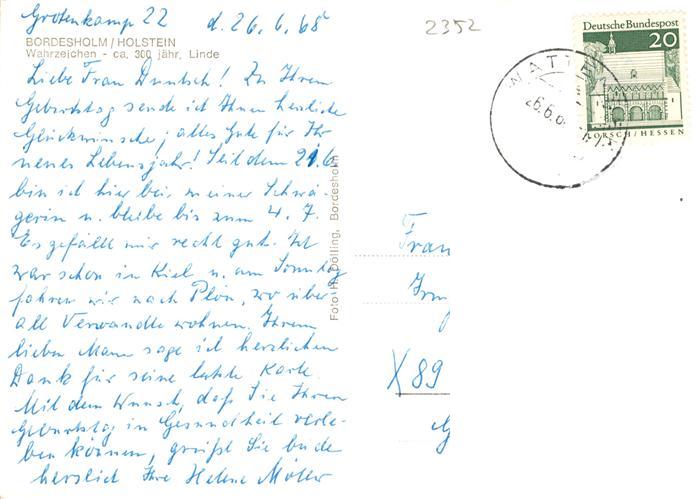 Grotenkamp 22 d. 26.6.68
2352
BORDESHOLM/HOLSTEIN
Wahrzeichen - ca. 300 jähr. Linde
Liebe Frau ! Zu Ihrem
Geburtstag sende ich Ihnen herzliche
Glückwünsche; alles Gute für Ihr
neues Lebensjahr! Seit dem 21.6.
bin ich hier bei meiner Schwä-
gerin u. bleibe bis zum 4. 7.
Es gefällt mir recht gut. Ich
war schon in Kiel u. am Sonntag
fahren wir nach Plön, wo über
all Verwandte wohnen. Ihrem
lieben Mann sage ich herzlichen
Dank für seine letzte Karte.
Mit dem Wunsch, daß Sie Ihren
Geburtstag in Gesundheit verle-
ben können, grüßt Sie beide
herzlich Ihre Helene
Foto: H. Dölling, Bordesholm
Deutsche Bundespost
20
LORSCH/HESSEN
WATTEN
26.6.6
Frau
X 89